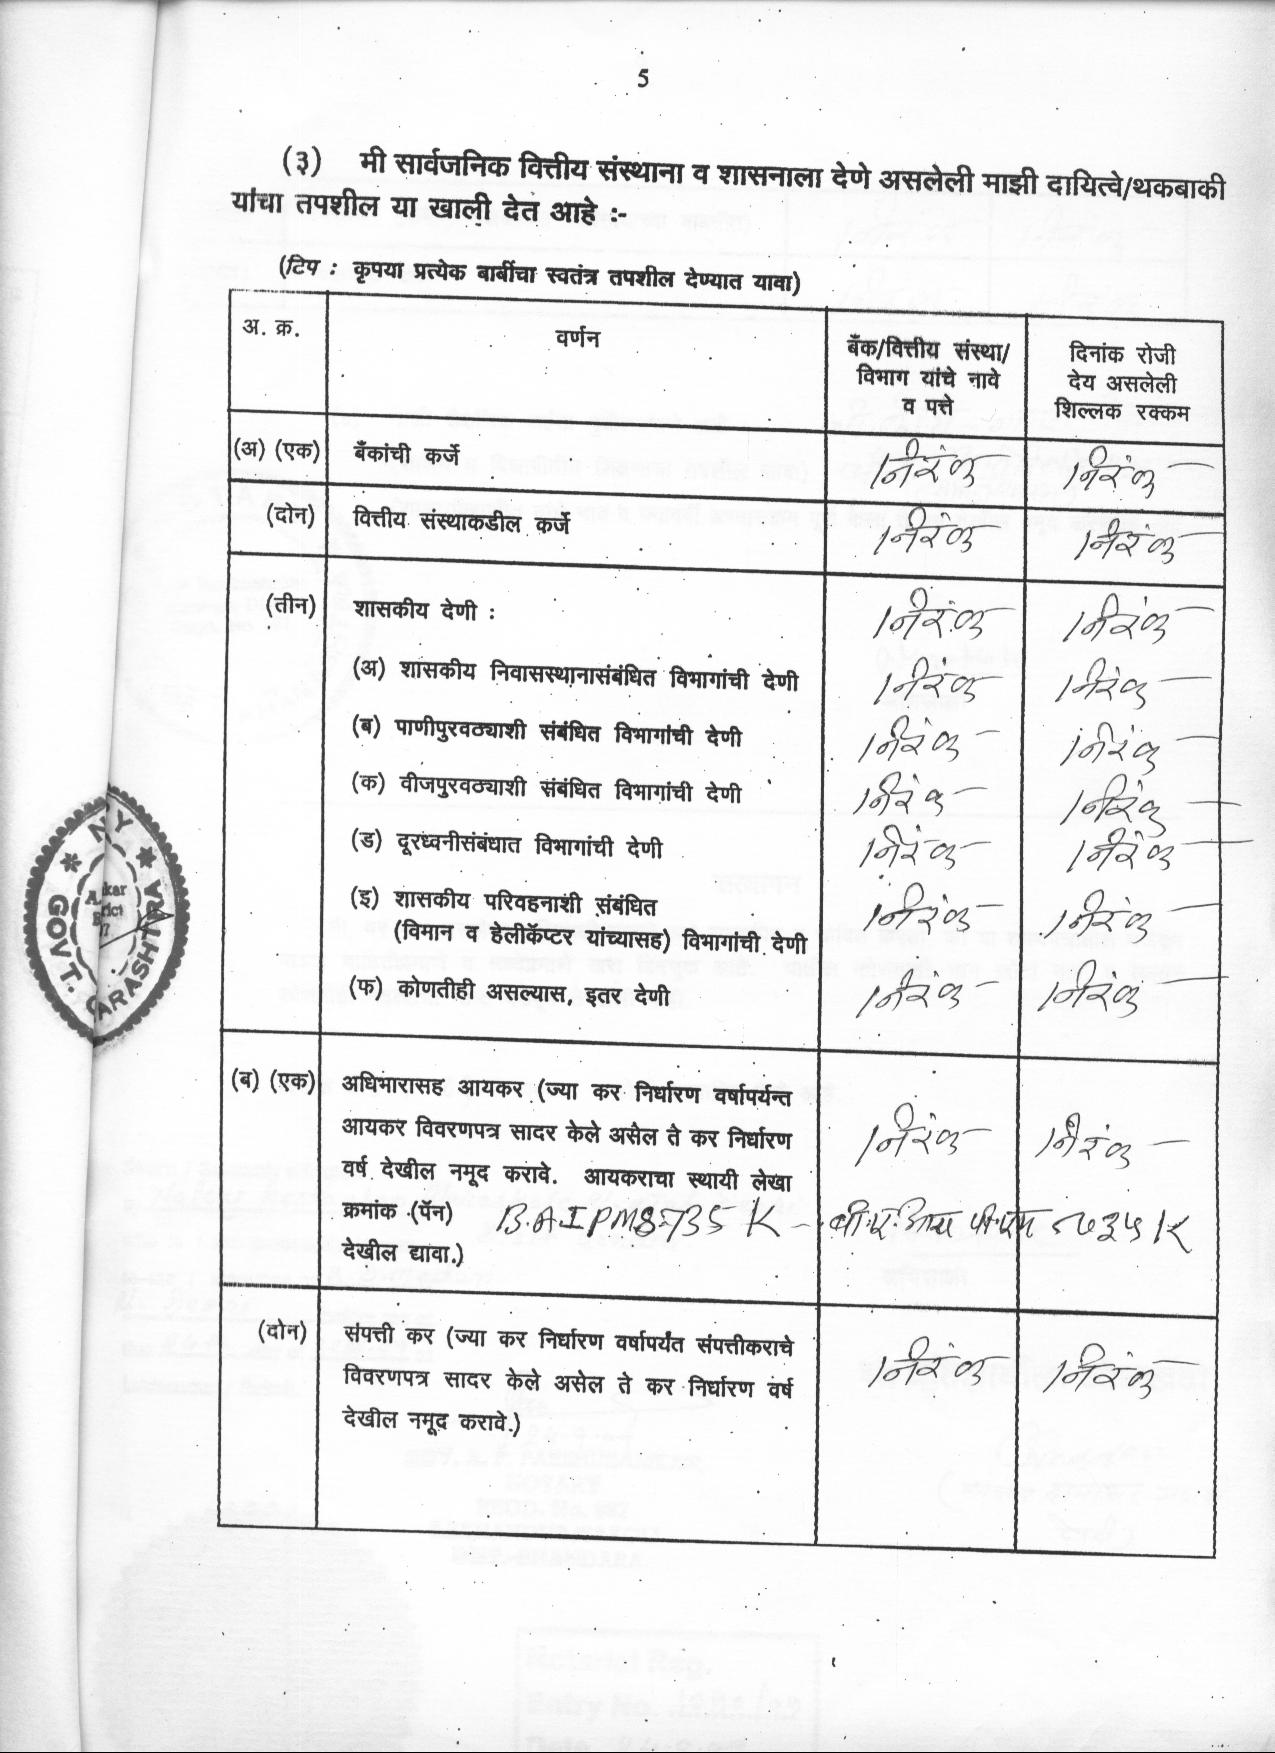 5
(३) मी सार्वजनिक वित्तीय संस्थाना व शासनाला देणे असलेली माझी दायित्वे/थकबाकी
यांचा तपशील या खाली देत आहे :-
(टिप : कृपया प्रत्येक बाबींचा स्वतंत्र तपशील देण्यात यावा)
अ. क्र.
वर्णन
बँक/वित्तीय संस्था/
विभाग यांचे नावे
व पत्ते
दिनांक रोजी
देय असलेली
शिल्लक रक्कम
(अ) (एक) बँकांची कर्जे निरंक निरंक
(दोन) वित्तीय संस्थाकडील कर्जे निरंक निरंक
(तीन) शासकीय देणी : निरंक निरंक
(अ) शासकीय निवासस्थानासंबंधित विभागांची देणी निरंक निरंक
(ब) पाणीपुरवठ्याशी संबंधित विभागांची देणी निरंक निरंक
(क) वीजपुरवठ्याशी संबंधित विभागांची देणी निरंक निरंक
(ड) दूरध्वनीसंबंधात विभागांची देणी निरंक निरंक
(इ) शासकीय परिवहनाशी संबंधित निरंक निरंक
(विमान व हेलीकॅप्टर यांच्यासह) विभागांची देणी
(फ) कोणतीही असल्यास, इतर देणी निरंक निरंक
(ब) (एक) अधिभारासह आयकर (ज्या कर निर्धारण वर्षापर्यन्त
आयकर विवरणपत्र सादर केले असेल ते कर निर्धारण निरंक निरंक
वर्ष देखील नमूद करावे. आयकराचा स्थायी लेखा
क्रमांक (पॅन) B.A.I.P.M 8735 K - बी.ए.आय पी.एम ८७३५ K
देखील द्यावा.)
(दोन) संपत्ती कर (ज्या कर निर्धारण वर्षापर्यंत संपत्तीकराचे निरंक निरंक
विवरणपत्र सादर केले असेल ते कर निर्धारण वर्ष
देखील नमूद करावे.)
GOVT.